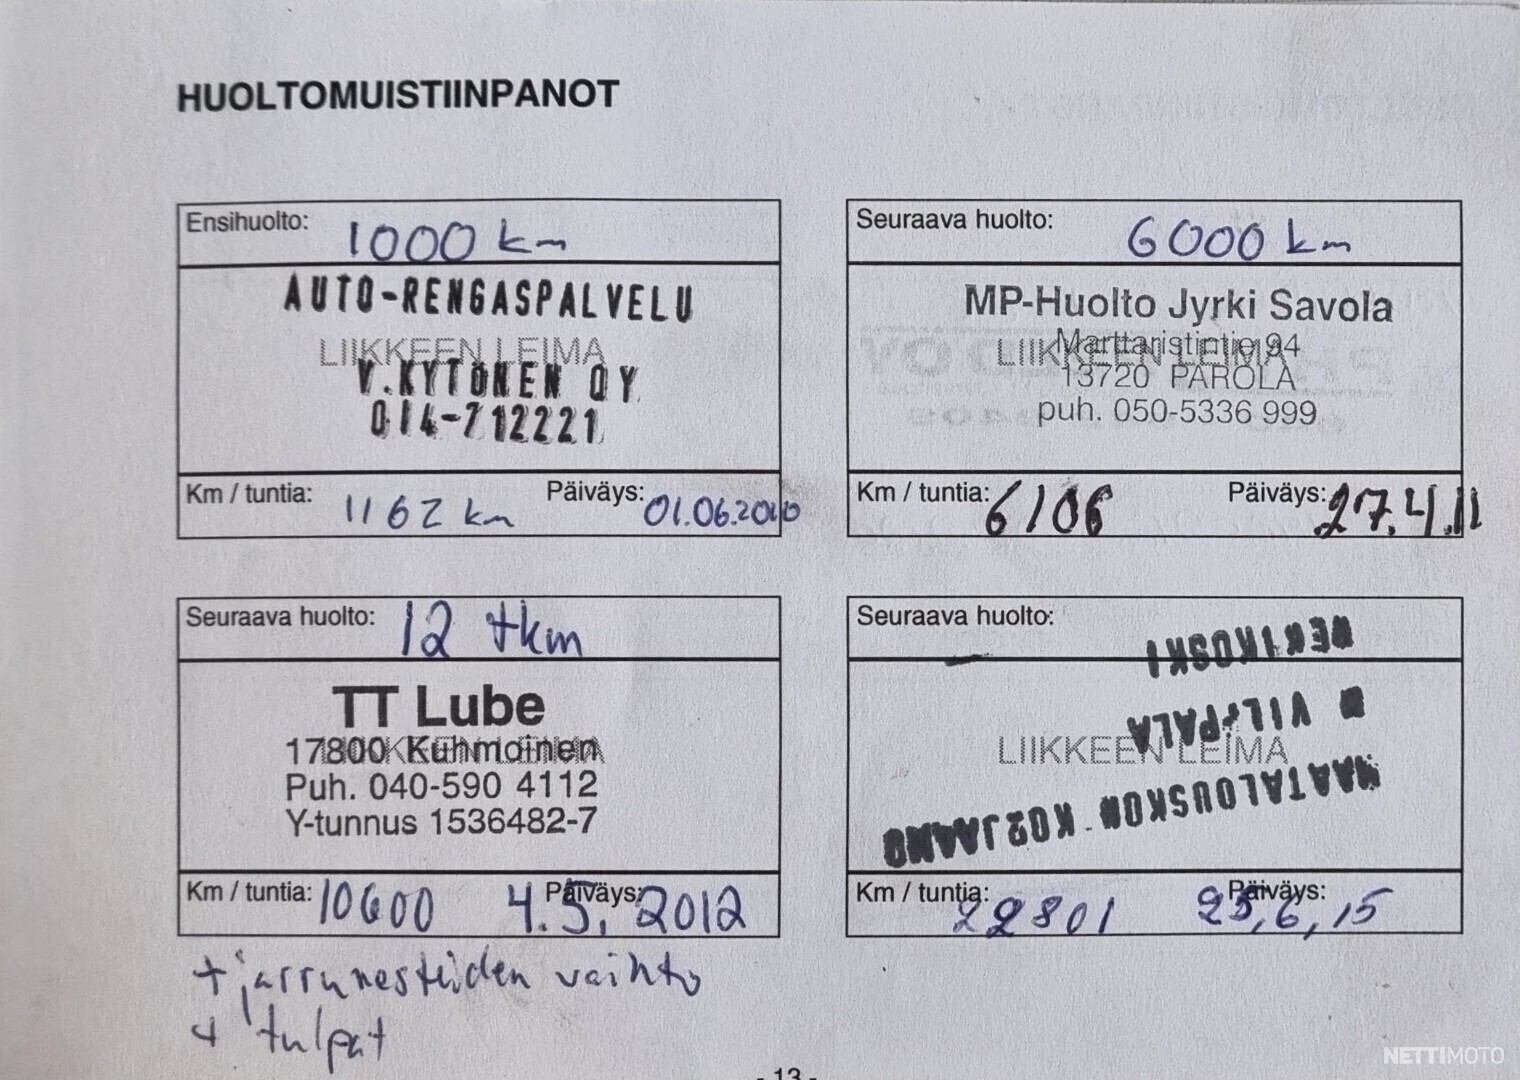 HUOLTOMUISTIINPANOT
Ensihuolto: 1000 km
AUTO-RENGASPALVELU
LIIKKEEN LEIMA
V.KYTÖNEN OY
014-712221
Km / tuntia: 1162 km Päiväys: 01.06.2010
Seuraava huolto: 6000 km
MP-Huolto Jyrki Savola
LIIKKEEN LEIMA
Marttaristintie 94
13720 PAROLA
puh. 050-5336 999
Km / tuntia: 6106 Päiväys: 27.4.11
Seuraava huolto: 12 tkm
TT Lube
LIIKKEEN LEIMA
17800 Kuhmoinen
Puh. 040-590 4112
Y-tunnus 1536482-7
Km / tuntia: 10600 Päiväys: 4.5.2012
+ jarrunesteiden vaihto
+ tulpat
Seuraava huolto:
LIIKKEEN LEIMA
MAATALOUSKON
VILPPALA
Km / tuntia: 22801 Päiväys: 25,6,15
- 13 -
NETTIMOTO